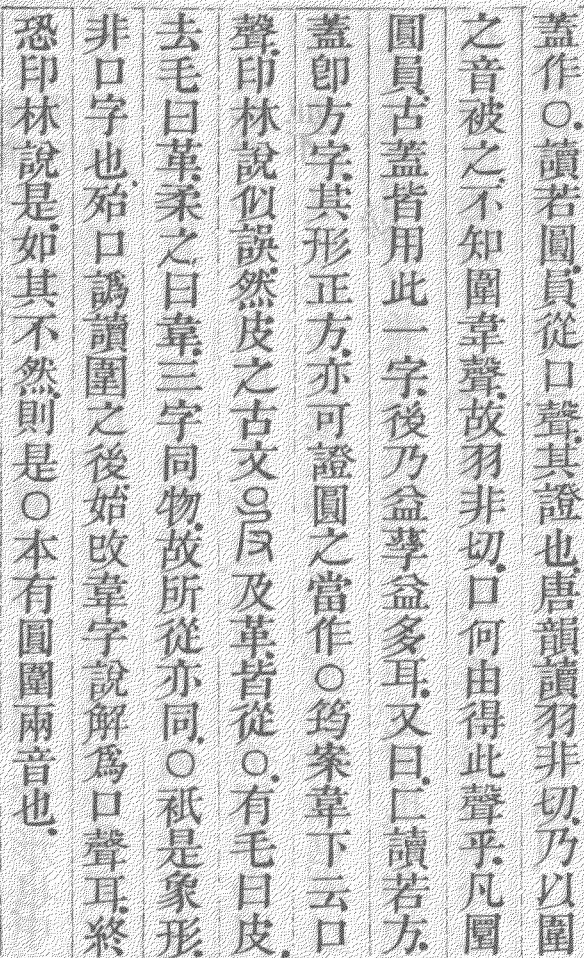 蓋作○.讀若圓.員從口聲.其證也.唐韻讀羽非切.乃以圍
之音被之.不知圍韋聲.故羽非切.口何由得此聲乎.凡圍
圓員.古蓋皆用此一字.後乃益孳益多耳.又曰.匚讀若方.
蓋卽方字.其形正方.亦可證圓之當作○筠案韋下云口
聲.印林說似誤.然皮之古文及革.皆從○.有毛曰皮.
去毛曰革.柔之曰韋.三字同物.故所從亦同.○祇是象形.
非口字也.殆口譌讀圍之後.始改韋字說解爲口聲耳.終
恐印林說是.如其不然.則是○本有圓圍兩音也.